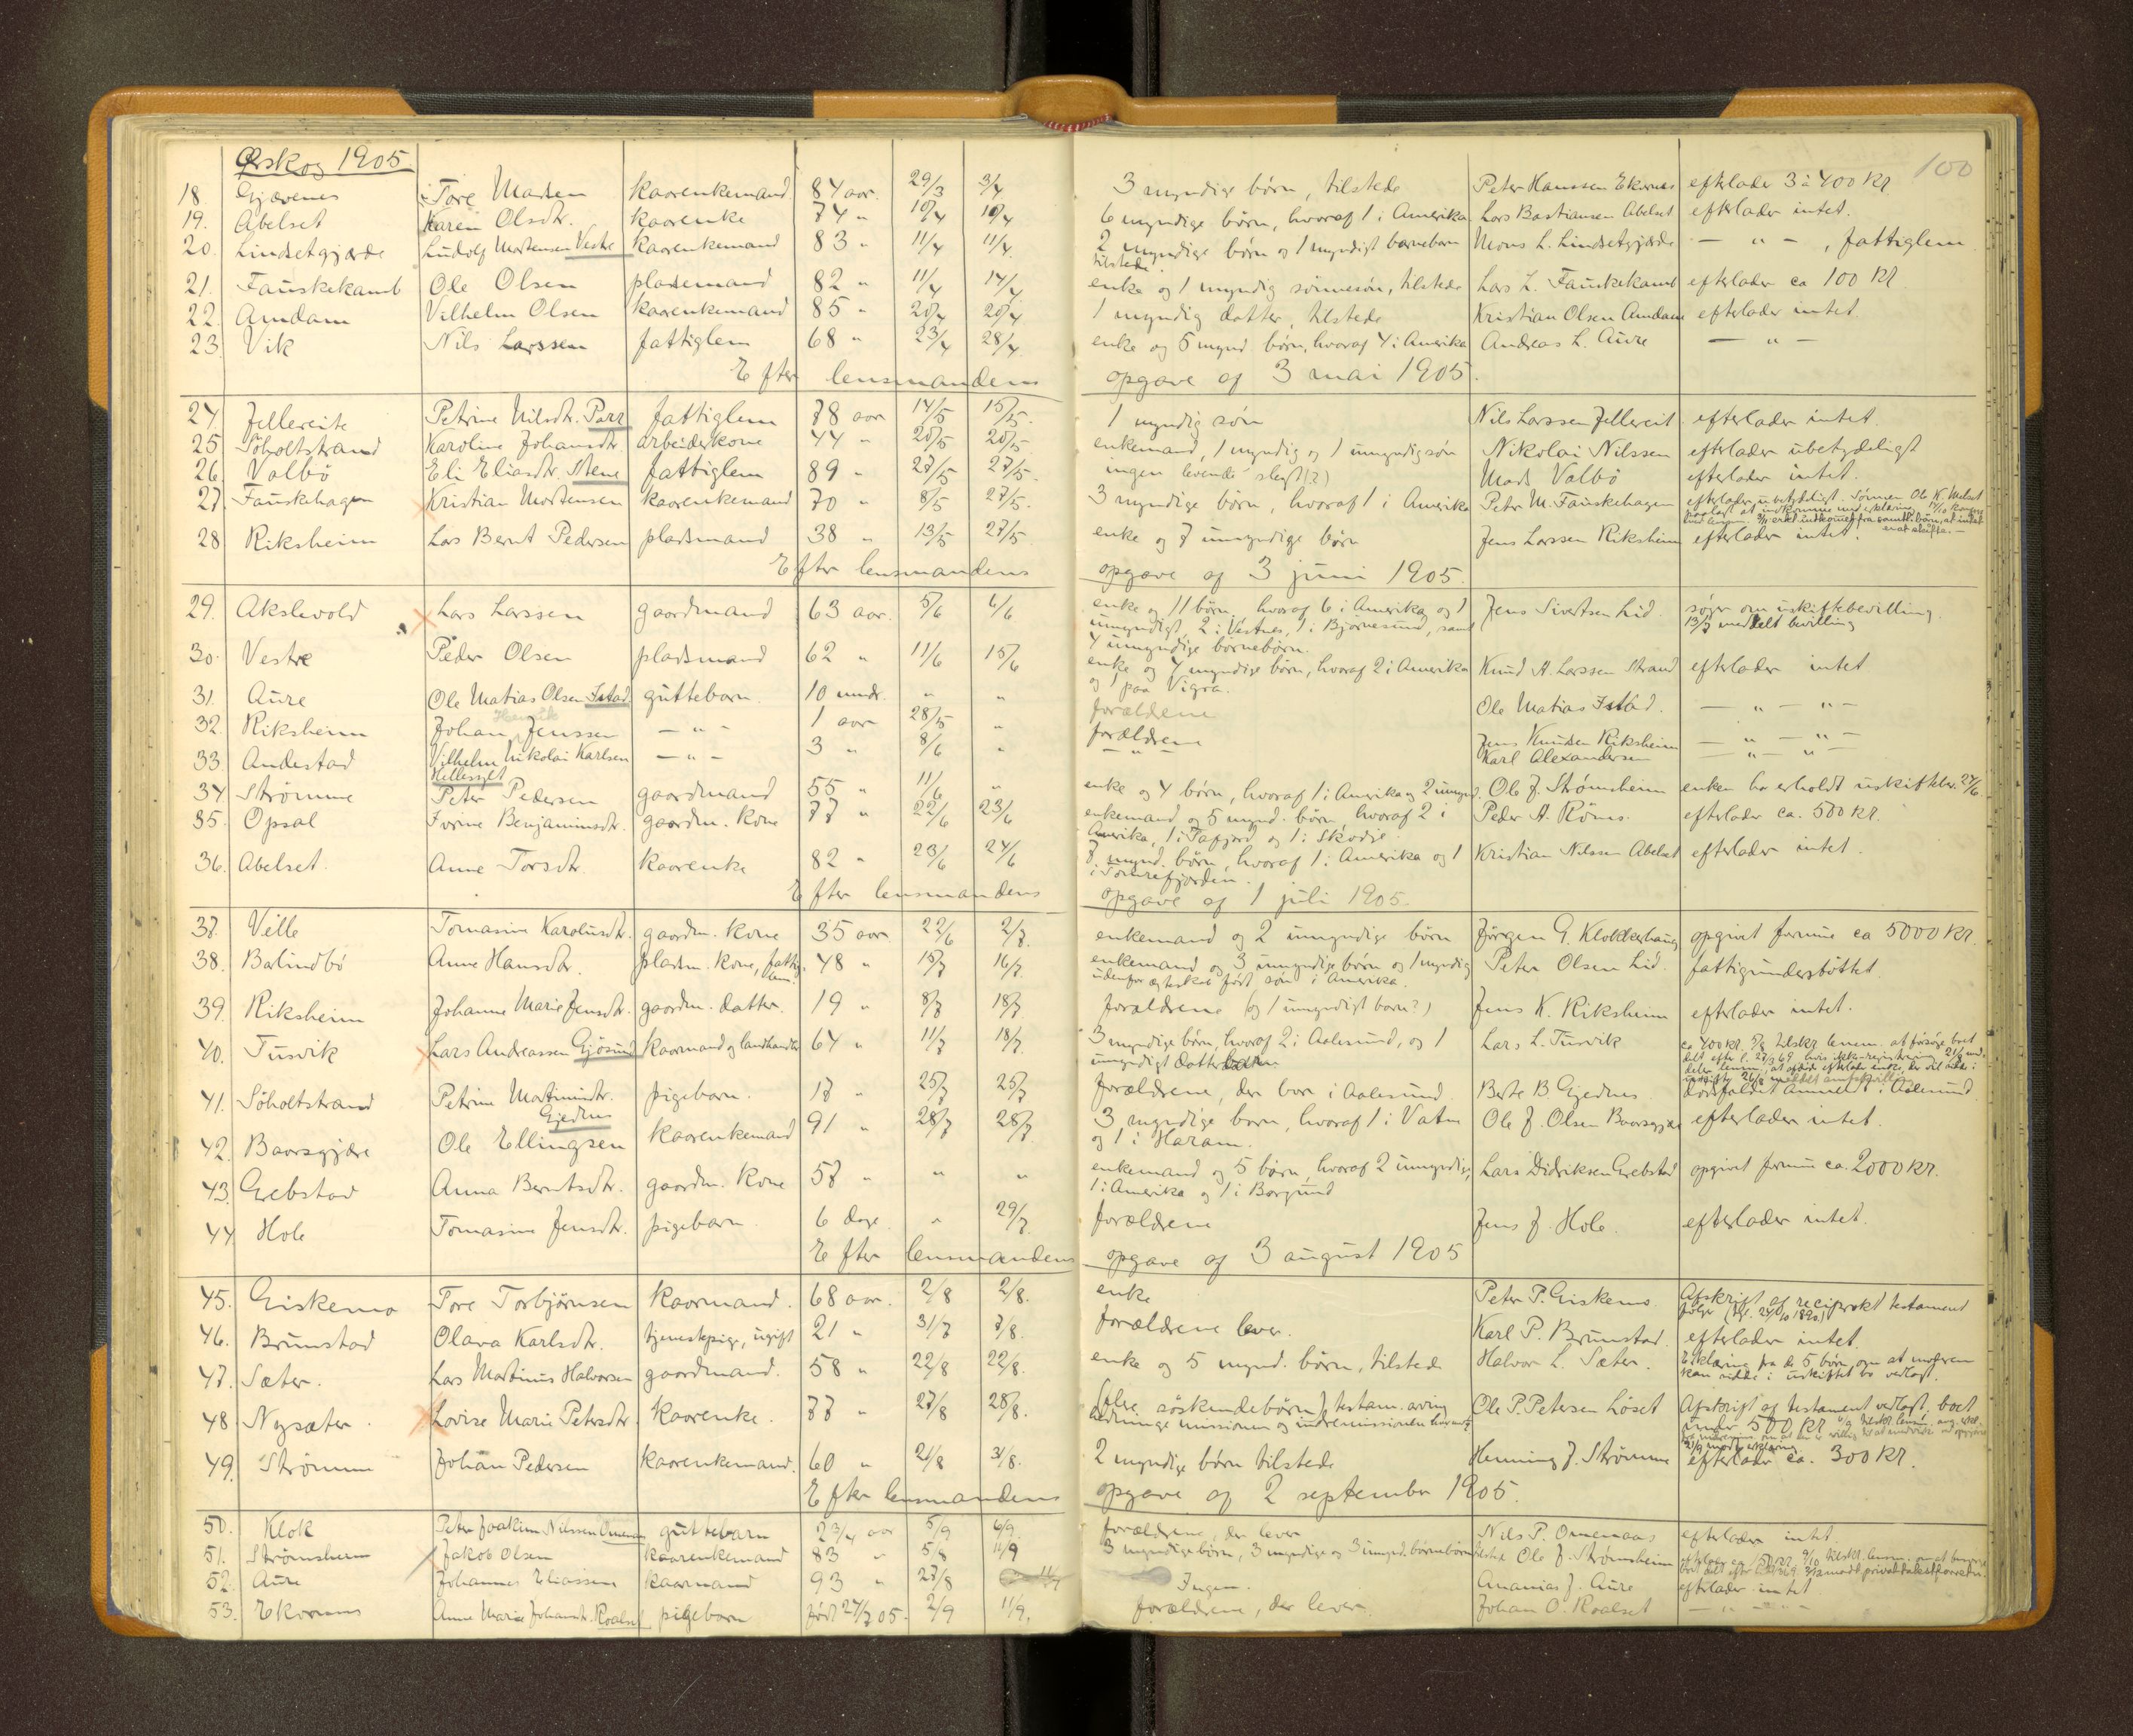 Ørskog 1905
100
18. Gjævenes Tore Madsen kaarenkemand 84 aar. 29/3 3/4 3 myndige børn, tilstede Peter Hanssen Ekornes efterlader 3 à 400 kr
19. Abelset Karen Olsdtr. kaarenke 74 " 10/4 10/4 6 myndige børn, hvoraf 1 i Amerika Lars Bastiansen Abelset efterlader intet.
20. Lindsetgjærde Ludolf Mortensen Vestre kaarenkemand 83 " 11/4 11/4. 2 myndige børn og 1 myndigt barnebarn Mons L. Lindsetgjærde — " — , fattiglem
tilstede.
21. Fauskekamb Ole Olsen pladsemand 82 " 11/4 14/4 enke og 1 myndig sønnesøn, tilstede Lars L. Fauskekamb efterlader ca 100 kr
22. Amdam Vilhelm Olsen kaarenkemand 85 " 20/4 20/4 1 myndig datter, tilstede Kristian Olsen Amdam efterlader intet
23. Vik Nils Larssen fattiglem 68 " 23/4 28/4 enke og 5 mynd. børn, hvoraf 4 i Amerika Andreas L. Aure — " —
Efter lensmandens opgave af 3 mai 1905.
24. Jellereite Petrine Nilsdtr. fattiglem 78 aar 14/5 15/5. 1 myndig søn Nils Larssen Jellereit efterlader intet.
25. Søholtstrand Karoline Johansdtr. arbeiderkone 44 " 20/5 20/5 enkemand, 1 myndig og 1 umyndig søn Nikolai Nilssen efterlader ubetydeligt
26. Valbø Eli Eliasdtr. Stene fattiglem 89 " 27/5 27/5. ingen levende slegt (?) Mads Valbø efterlader intet.
27. Fauskehagen Kristian Mortensen kaarenkemand 70 " 8/5 27/5. 3 myndige børn, hvoraf 1 i Amerika Peter M. Fauskehagen efterlader ubetydeligt. Sønnen Ole K. Melset
28 Riksheim Lars Bernt Pedersen pladsmand 38 " 13/5 27/5 enke og 7 umyndige børn Jens Larssen Riksheim efterlader intet.
Efter lensmandens opgave af 3 juni 1905.
29. Akslevold Lars Larssen gaardmand 63 aar. 5/6 6/6 enke og 11 børn, hvoraf 6 i Amerika og 1 Jens Sivertsen Lid. søger om uskiftebevilling
umyndigt, 2 i Vestnes, 1 i Bjørnesund, samt 13/7 meddelt bevilling
4 umyndige børnebørn.
30. Vestre Peder Olsen pladsmand 62 " 11/6 15/6 enke og 4 myndige børn, hvoraf 2 i Amerika Knud A. Larssen Strand efterlader intet
og 1 paa Vigra.
31. Aure Ole Matias Olsen Istad guttebarn. 10 mndr. " " forældrene Ole Matias Istad. — " — " —
32. Riksheim Johan Henrik Jenssen — " — 1 aar 28/5 " forældrene Jens Knudsen Riksheim — " — " —
33. Andestad Vilhelm Nikolai Karlsen — " — 3 " 8/6 " — " — Karl Alexandersen — " — " —
Hellesylt
34. Strømme Peter Pedersen gaardmand 55 " 11/6 " enke og 4 børn, hvoraf 1 i Amerika og 2 umynd. Ole J. Strømsheim enken har erholdt uskiftebev. 27/6
35. Opsal Ivrine Benjaminsdtr. gaardm. kone 77 " 22/6 23/6 enkemand og 5 mynd. børn, hvoraf 2 i Peder A. Røms. efterlader ca. 500 kr.
Amerika, 1 i Tafjord og 1 i Skodje.
36. Abelset. Anne Torsdtr. kaarenke 82 " 23/6 24/6 7 mynd. børn, hvoraf 1 i Amerika og 1 Kristian Nilssen Abelset efterlader intet.
i Tomrefjorden.
Efter lensmandens opgave af 1 juli 1905.
37. Velle Tomasine Karolusdtr. gaardm. kone 35 aar 22/6 2/7. enkemand og 2 umyndige børn Jørgen G. Klokkerhaug opgivet formue ca 5000 kr.
38. Barlindbø Anne Hansdtr. pladsm. kone, fattiglem. 48 " 15/7 16/7. enkemand og 3 umyndige børn og 1 myndig Peter Olsen Lid. fattigunderstøttet.
udenfor ægteskab født søn i Amerika.
39. Riksheim Johanne Marie Jensdtr. gaardm. datter 19 " 8/7 18/7. forældrene (og 1 umyndigt barn?) Jens K. Riksheim efterlader intet.
40. Tusvik Lars Andreassen Gjøsund kaarmand og landhandler 64 " 11/7 18/7. 3 myndige børn, hvoraf 2 i Aalesund, og 1 Lars L. Tusvik
umyndigt datterbarn
41. Søholtstrand Petrine Martinusdtr. Gjednes pigebarn. 17 " 25/7 25/7 forældrene, der bor i Aalesund Berte B. Gjednes dødsfaldet anmeldt i Aalesund
42. Baarsgjære Ole Ellingsen kaarenkemand 91 " 28/7 28/7 3 myndige børn, hvoraf 1 i Vatne Ole J. Olsen Baarsgjære efterlader intet.
og 1 i Haram.
43. Grebstad Anna Berntsdtr. gaardm. kone 57 " " " enkemand og 5 børn, hvoraf 2 umyndige, Lars Didriksen Grebstad opgivet formue ca. 2000 kr.
1 i Amerika og 1 i Borgund
44. Hole Tomasine Jensdtr. pigebarn. 6 dage. " 29/7. forældrene Jens J. Hole. efterlader intet.
Efter lensmandens opgave af 3 august 1905
45. Giskemo Tore Torbjørnsen kaarmand. 68 aar. 2/8 2/8. enke Peter P. Giskemo. Afskrift af reciprokt testament
følger
46. Brunstad Olava Karlsdtr. tjenestepige, ugift 21 " 31/7 7/8. forældrene lever. Karl P. Brunstad. efterlader intet.
47. Sæter. Lars Martinus Halvorsen gaardmand. 58 " 22/8 22/8. enke og 5 mynd. børn, tilstede Halvor L. Sæter. Erklæring fra de 5 børn om at moderen
kan sidde i uskiftet bo vedlagt.
48 Nysæter. Lovise Marie Petersdtr. kaarenke. 77 " 27/8 28/8. flere søskendebørn, testam. arving Ole P. Petersen Løset Afskrift af testament vedlagt, boet
hedningemissionen og indremissionen under 500 kr
49. Strømme Johan Pedersen kaarenkemand. 60 " 21/8 31/8. 2 myndige børn tilstede Henning J. Strømme efterlader ca. 300 kr.
Efter lensmandens opgave af 2 september 1905.
50. Klok Peter Joakim Nilssen Omenaas guttebarn 2 3/4 aar 5/9 6/9. forældrene, der lever Nils P. Omenaas efterlader intet
51. Strømsheim Jakob Olsen kaarenkemand 83 " 5/8 11/9 3 myndige børn, 3 myndige og 3 umynd. børnebørn tilstede Ole J. Strømsheim
52. Aure Johannes Eliassen kaarmand 93 " 27/8 Ingen. Ananias J. Aure efterlader intet
53. Ekornes Anne Marie Johansdtr. Roalset pigebarn født 27/7 05. 2/9 11/9. forældrene, der lever Johan O. Roalset — " — " —